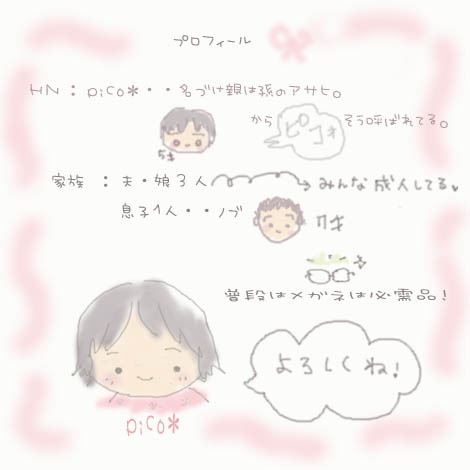 プロフィール
HN：piCO*・・名づけ親は孫のアサヒ。
5才
から ピコォ そう呼ばれてる。
家族：夫・娘3人 みんな成人してる
息子1人・・ノブ 17才
普段はメガネは必需品！
よろしくね！
piCO*